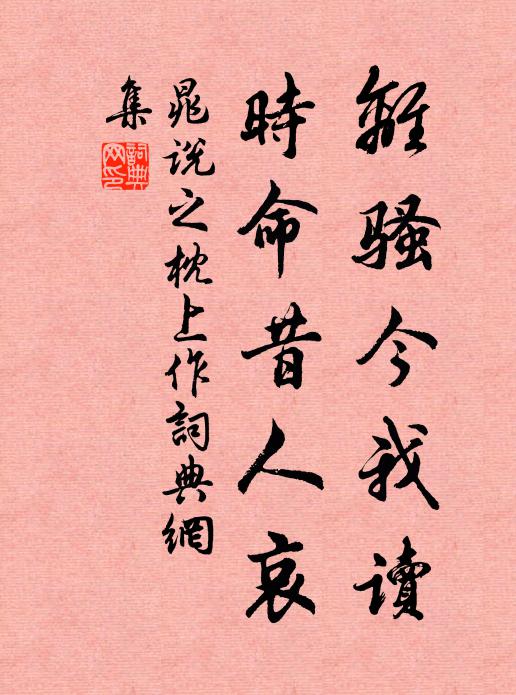 離騷今我讀
時命昔人哀
晁說之枕上作詞典網
集
詞典
网印